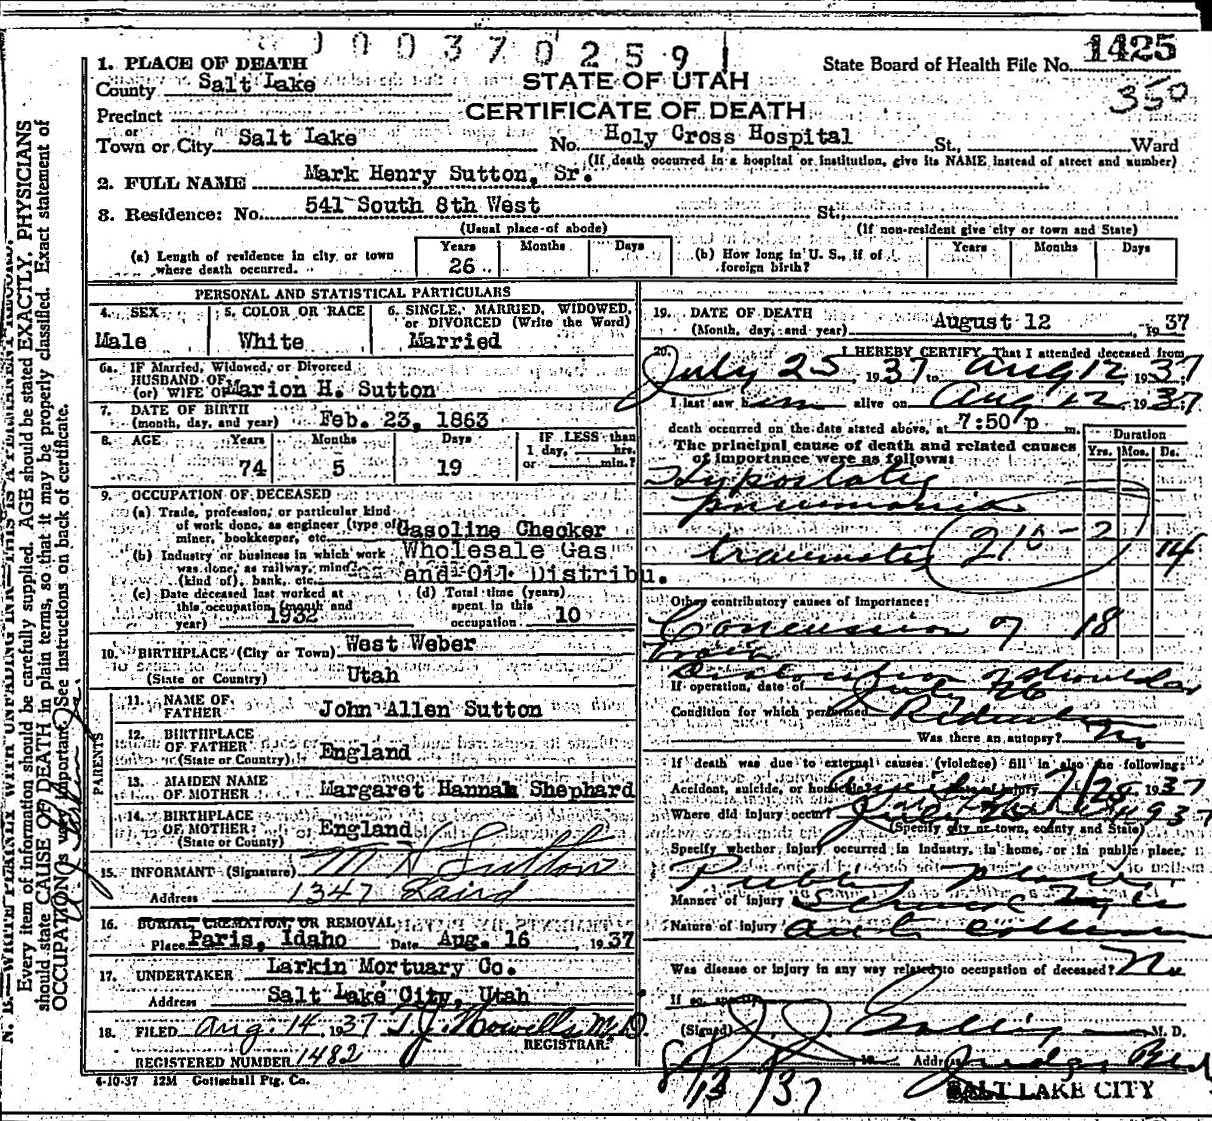 000370259 1
1. PLACE OF DEATH
STATE OF UTAH
State Board of Health File No. 1425
County Salt Lake
CERTIFICATE OF DEATH
350
Precinct
or
Town or City Salt Lake No. Holy Cross Hospital St., Ward
(If death occurred in a hospital or institution, give its NAME instead of street and number)
2. FULL NAME Mark Henry Sutton, Sr.
3. Residence: No. 541 South 8th West St.,
(Usual place of abode) (If non-resident give city or town and State)
(a) Length of residence in city or town where death occurred. Years 26 Months Days
(b) How long in U. S., if of foreign birth? Years Months Days
PERSONAL AND STATISTICAL PARTICULARS
4. SEX Male
5. COLOR OR RACE White
6. SINGLE, MARRIED, WIDOWED, or DIVORCED (Write the Word) Married
6a. IF Married, Widowed, or Divorced
HUSBAND OF
(or) WIFE OF Marion H. Sutton
7. DATE OF BIRTH
(month, day, and year) Feb. 23, 1863
8. AGE Years 74 Months 5 Days 19 IF LESS than 1 day, hrs. or min.?
9. OCCUPATION OF DECEASED
(a) Trade, profession, or particular kind of work done, as engineer (type of) miner, bookkeeper, etc. Gasoline Checker
(b) Industry or business in which work was done, as railway, mine (kind of), bank, etc. Wholesale Gas and Oil Distribu.
(c) Date deceased last worked at this occupation (month and year) 1932
(d) Total time (years) spent in this occupation 10
10. BIRTHPLACE (City or Town) West Weber
(State or Country) Utah
PARENTS
11. NAME OF FATHER John Allen Sutton
12. BIRTHPLACE OF FATHER (State or Country) England
13. MAIDEN NAME OF MOTHER Margaret Hannah Shephard
14. BIRTHPLACE OF MOTHER (State or County) England
15. INFORMANT (Signature) M H Sutton
Address 1347 Laird
16. BURIAL, CREMATION, OR REMOVAL
Place Paris, Idaho Date Aug. 16, 1937
17. UNDERTAKER Larkin Mortuary Co.
Address Salt Lake City, Utah
18. FILED Aug. 14, 1937 T. J. Howells M D
REGISTRAR
REGISTERED NUMBER 1482
4-10-37 12M Gottschall Ptg. Co.
19. DATE OF DEATH
(Month, day, and year) August 12, 1937
20. I HEREBY CERTIFY, That I attended deceased from
July 25, 1937 to Aug 12, 1937
I last saw him alive on Aug 12, 1937
death occurred on the date stated above, at 7:50 p m.
The principal cause of death and related causes of importance were as follows:
Duration
Yrs. Mos. Ds.
Hypostatic
pneumonia
traumatic 210-2 14
Other contributory causes of importance:
Concussion of 18
Brain
Dislocation of shoulder
If operation, date of July 26
Condition for which performed Reduction
Was there an autopsy? No
If death was due to external causes (violence) fill in also the following:
Accident, suicide, or homicide? Date of injury 7/25, 1937
Where did injury occur?
(Specify city or town, county and State)
Specify whether injury occurred in industry, in home, or in public place.
Public place
Manner of injury
Nature of injury auto collision
Was disease or injury in any way related to occupation of deceased? No
If so, specify
(Signed) M. D.
8/13/37 19 Address Judge Bld
SALT LAKE CITY
Every item of information should be carefully supplied. AGE should be stated EXACTLY. PHYSICIANS
should state CAUSE OF DEATH in plain terms, so that it may be properly classified. Exact statement of
OCCUPATION is very important. See instructions on back of certificate.